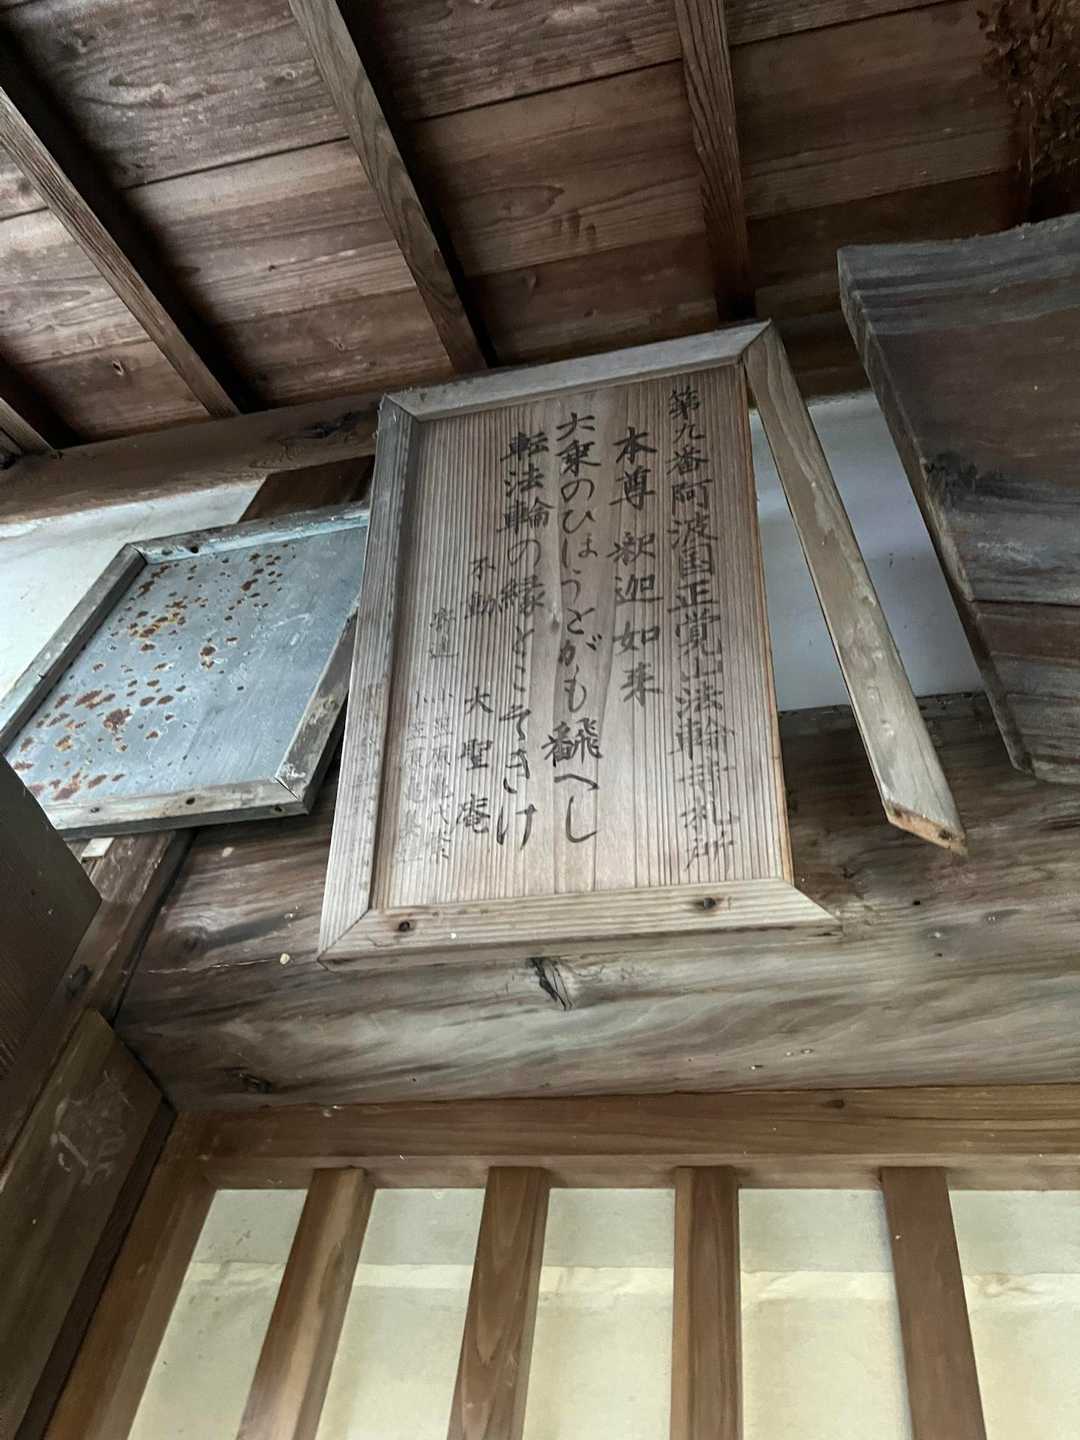 第九番阿波国正覚山法輪寺札所
本尊 釈迦如来
大乗のひほうとがも飜へし
転法輪の縁とこそきけ
不動 大聖庵
寄進
小笠原
小笠原